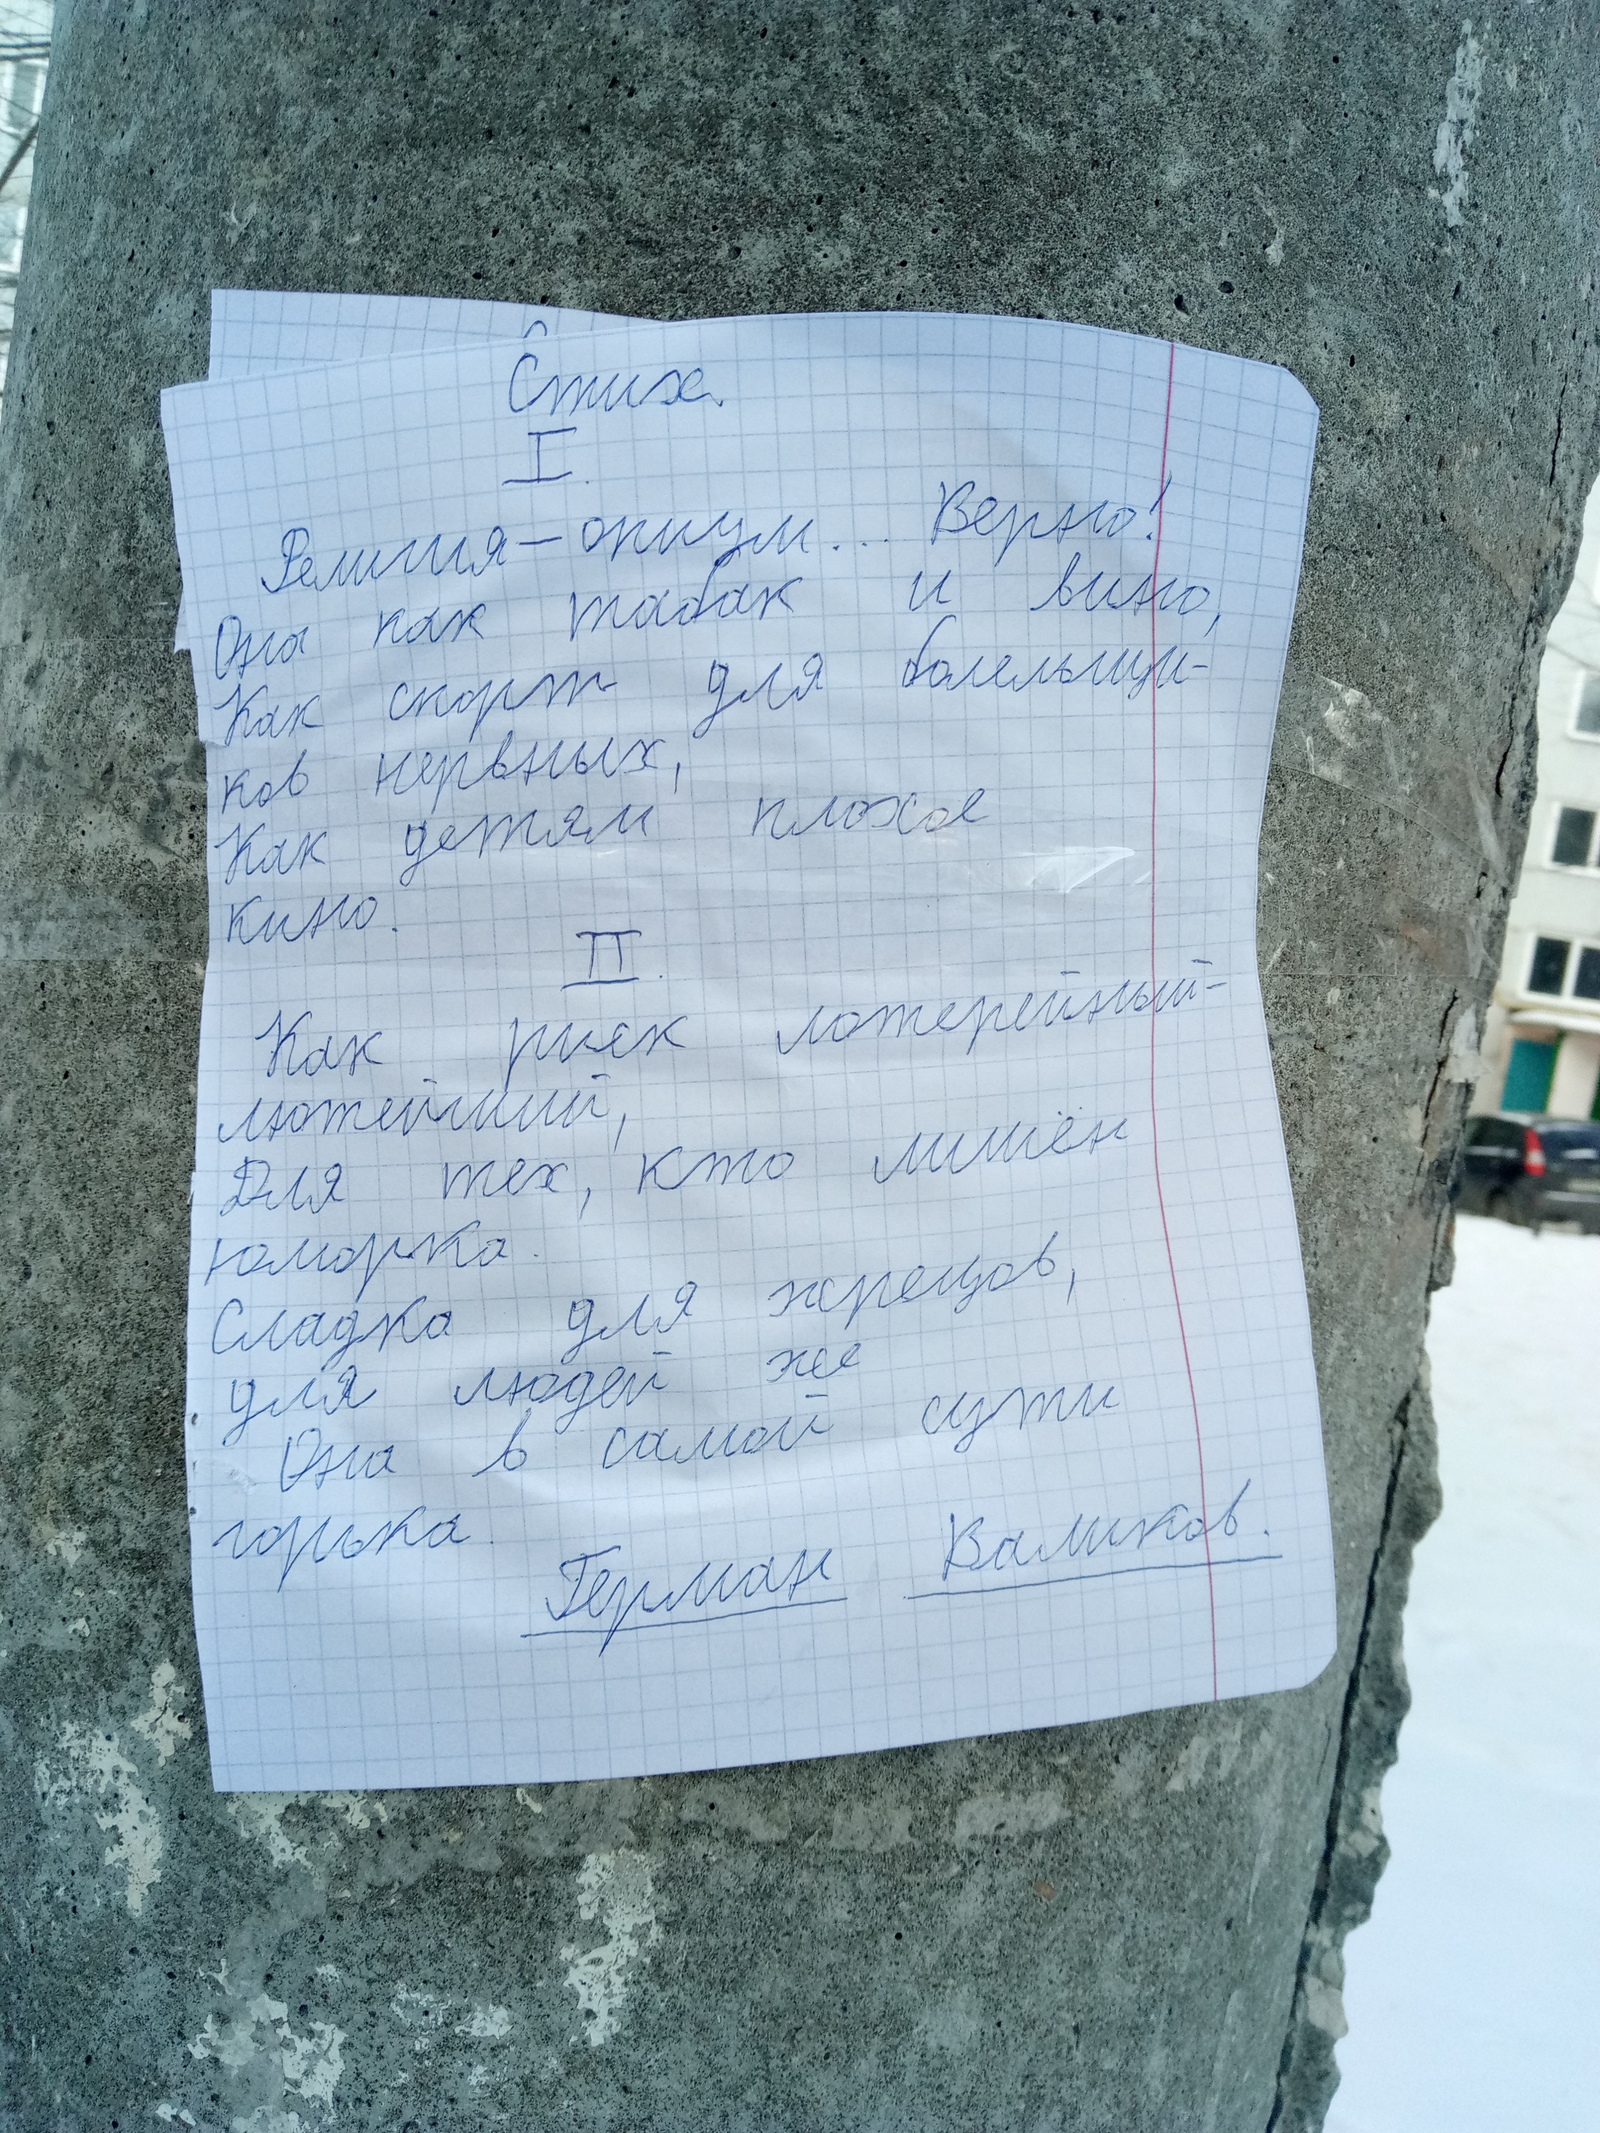 Стих.
I.
Религия — опиум... Верно!
Она как табак и вино,
Как спорт для болельщи-
ков нервных,
Как детям плохое
кино.
II.
Как риск лотерейный-
лотейный,
Для тех, кто лишён
юморка.
Сладка для жрецов,
для людей же
Она в самой сути
горька.
Герман Валиков.